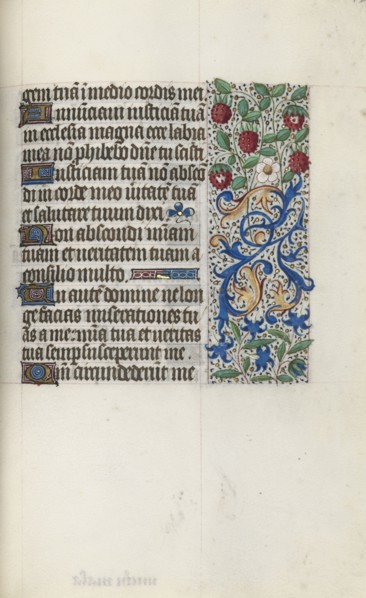 gem tuã ĩ medio cordis mei
Annũciaui iusticiã tuã
in ecclesia magna ecce labia
mea nõ ꝓhibebo dñe tu scisti
Iusticiam tuã nõ absco
di in corde meo ũitatẽ tuã
et salutare tuum dixi
Non abscondi m̃iam
tuam et ueritatem tuam a
consilio multo
Tu autẽ domine ne lon
ge facias miserationes tu
as a me m̃ia tua et ueritas
tua semꝑ susceperunt me
Qm̃ circundederũt me